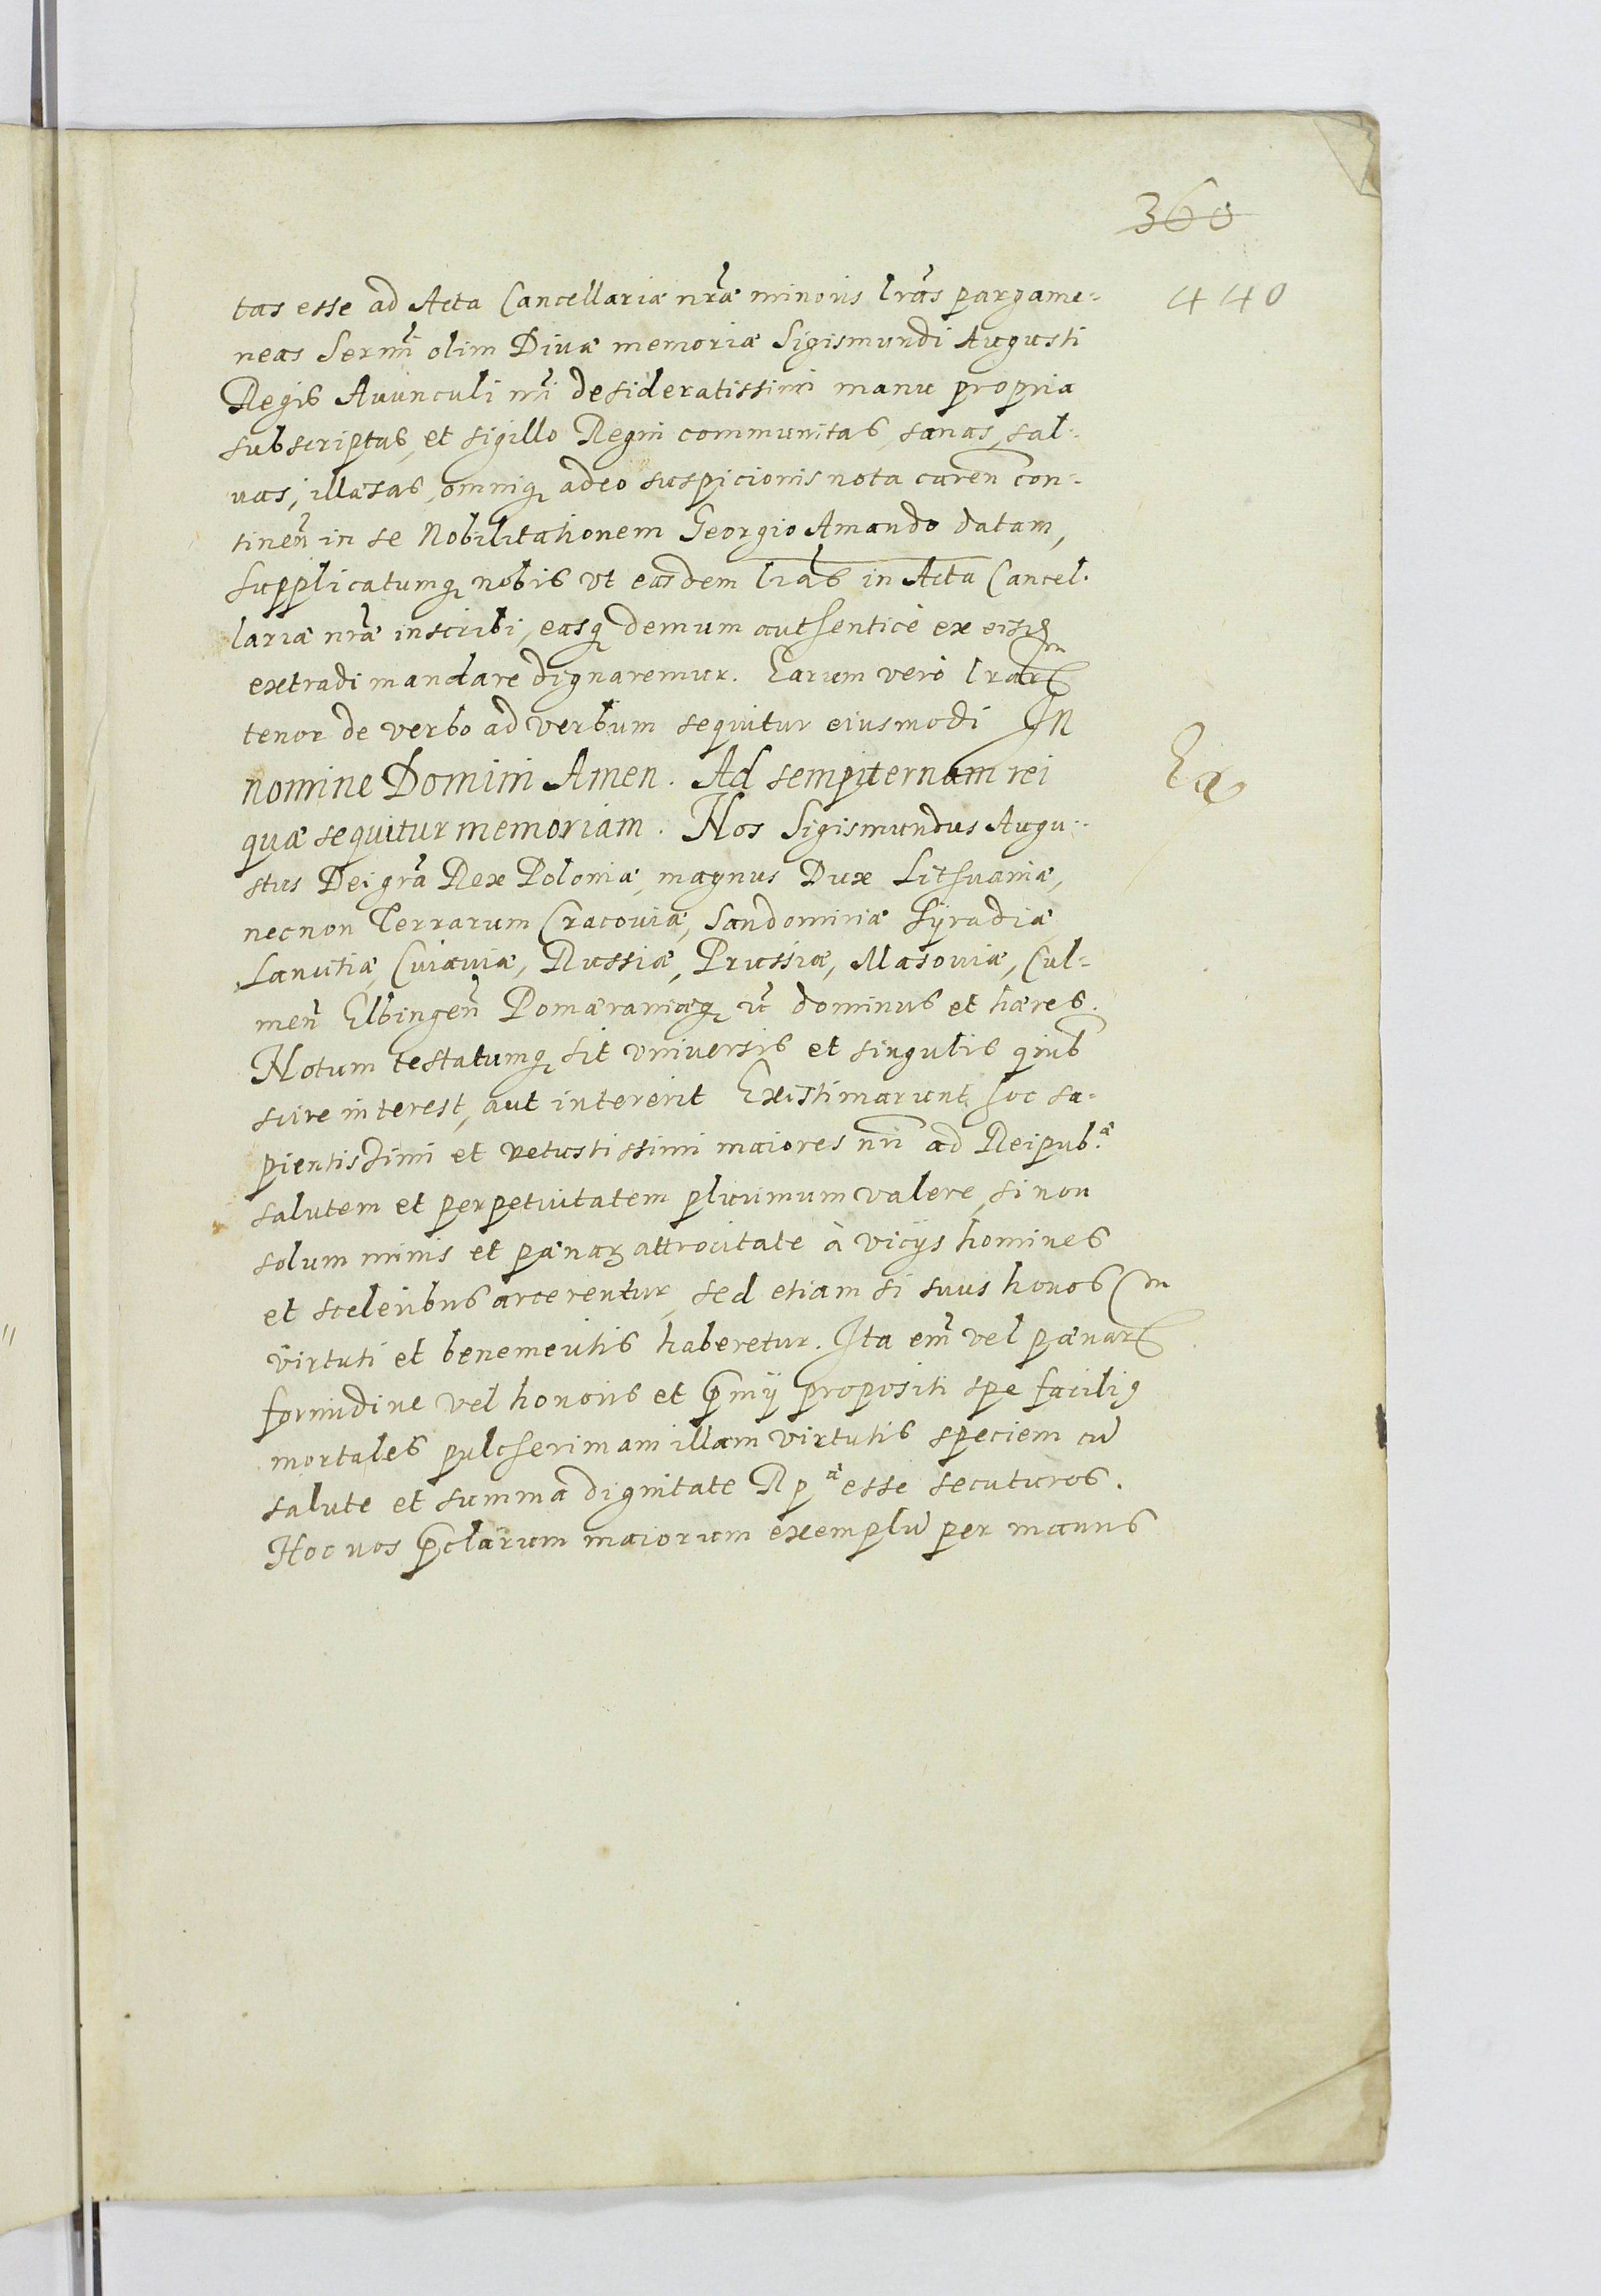 360
440
tas esse ad Acta Cancellariæ nr̃æ minoris lr̃as pargame-
neas Serm̃i olim Diuæ memoriæ Sigismundi Augusti
Regis Auunculi nr̃i desideratissimi manu propria
subscriptas, et sigillo Regni communitas, sanas, sal-
uas, illæsas, omniq; adeo suspicionis nota careñ con-
tineñ in se Nobilitationem Georgio Amando datam,
Supplicatumq; nobis vt easdem lr̃as in Acta Cancel-
lariæ nr̃æ inscribi, easq; demum authenticè ex eisdem
extradi mandare dignaremur. Earum verò lr̃arum
tenor de verbo ad verbum sequitur eiusmodi In
nomine Domini Amen. Ad sempiternam rei
quæ sequitur memoriam. Nos Sigismundus Augu-
stus Dei gr̃a Rex Poloniæ, magnus Dux Lithuaniæ,
necnon Terrarum Cracouiæ, Sandomiriæ Syradiæ
Lanciciæ, Cuiauiæ, Russiæ, Prussiæ, Masouiæ, Cul-
meñ Elbingeñ Pomæraniæq; dominus et hæres.
Notum testatumq; sit vniuersis et singulis quib
scire interest, aut intererit Existimarunt hoc sa-
pientissimi et vetustissimi maiores nr̃i ad Reipub.æ
salutem et perpetuitatem plurimum valere, si non
solum minis et pænarꝫ attrocitate à vicijs homines
et sceleribus arcerentur, sed etiam si suus honos
virtuti et benemeritis haberetur. Ita em̃ vel pænarum
formidine vel honoris et p̃mij propositi spe facili9
mortales pulcherimam illam virtutis speciem cũ
salute et summa dignitate Rp.æ esse secuturos.
Hoc nos p̃clarum maiorum exemplũ per manus